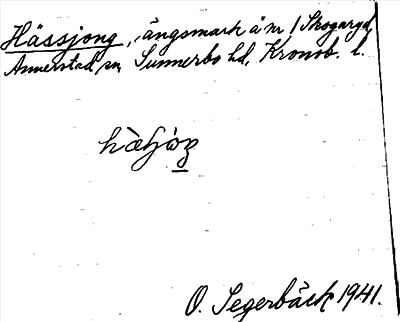 Hässjong, ängsmark å nr 1 Skogaryd,
Annerstad sn, Sunnerbo hd, Kronob. l.
O. Segerbäck 1941.